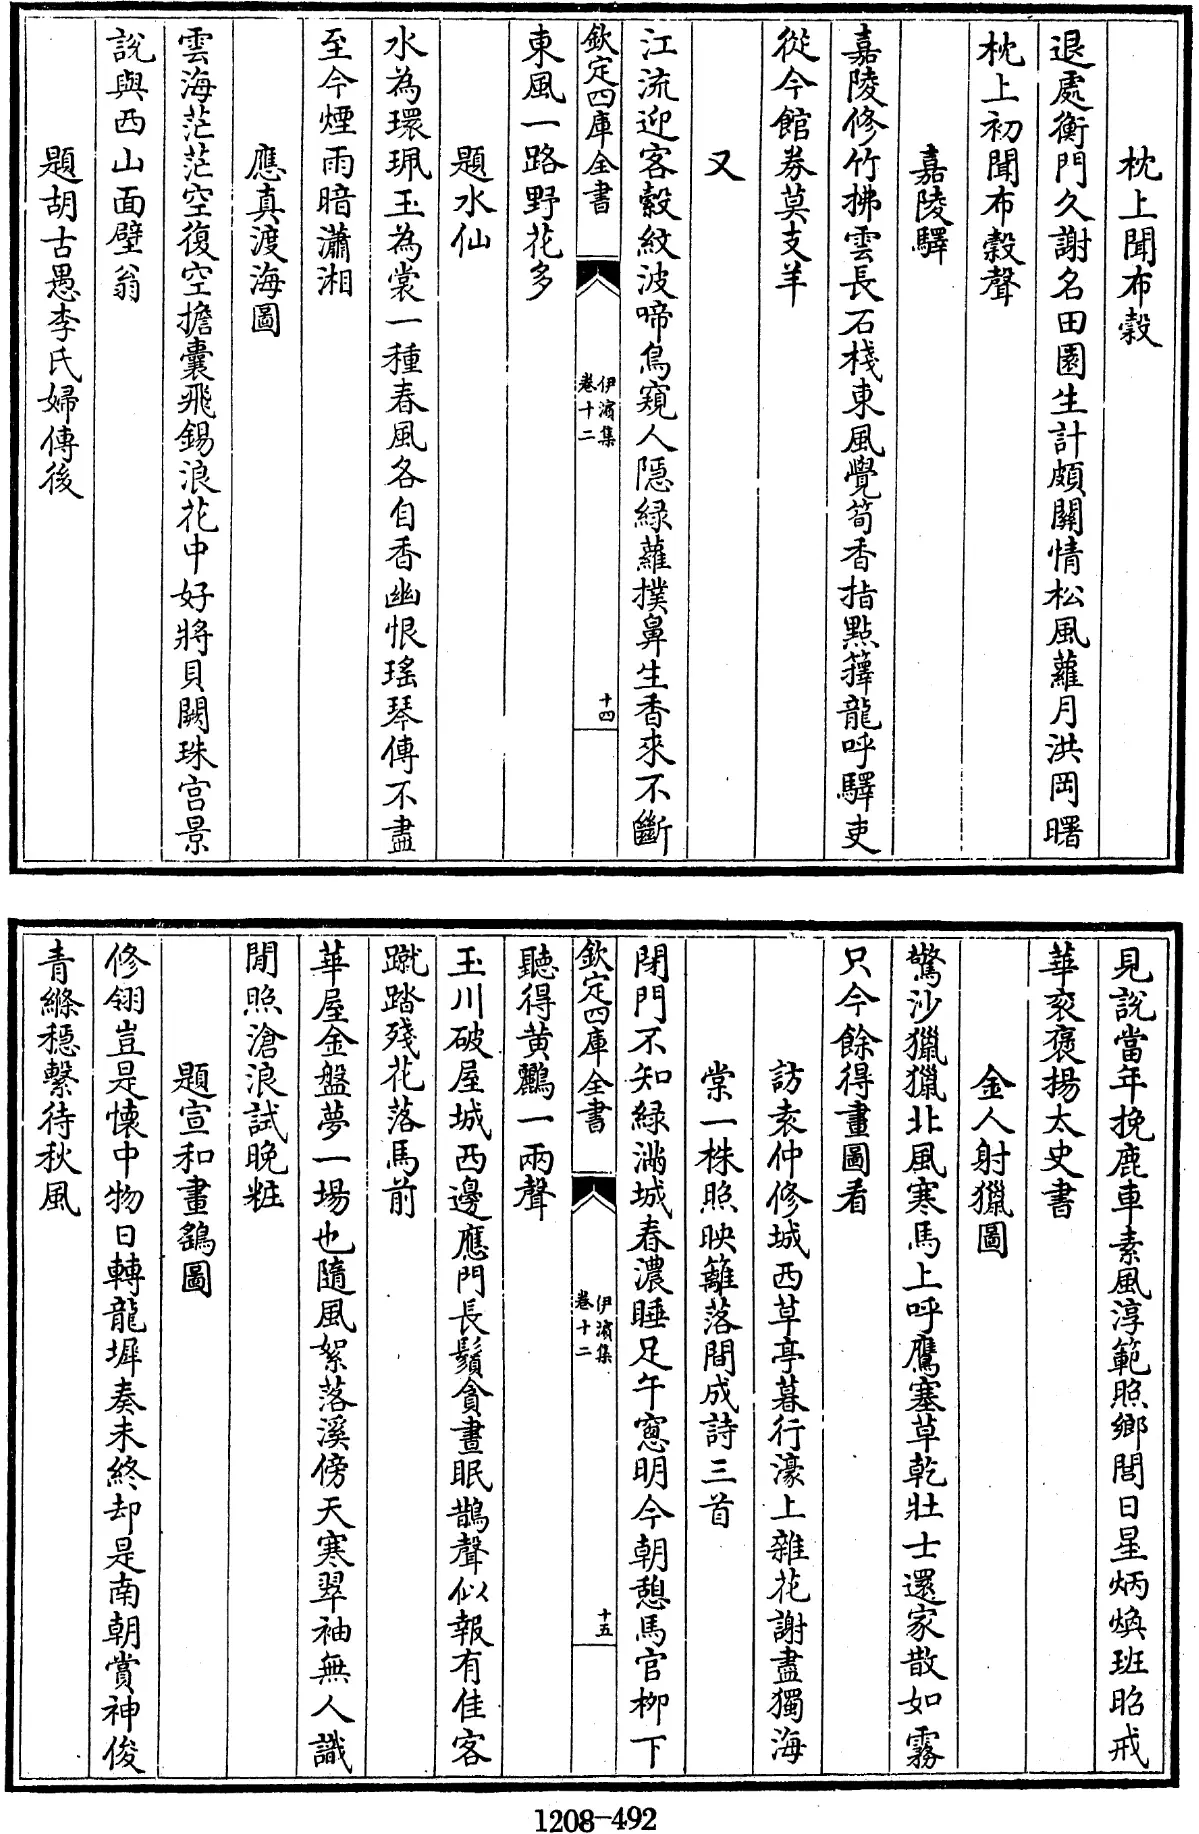 枕上聞布穀
退處衡門久謝名田園生計頗關情松風蘿月洪岡曙
枕上初聞布穀聲
嘉陵驛
嘉陵修竹拂雲長石棧東風覺筍香指點籜龍呼驛吏
從今館券莫支羊
又
江流迎客縠紋波啼鳥窺人隱綠蘿撲鼻生香來不斷
欽定四庫全書
伊濱集
卷十二
十四
東風一路野花多
題水仙
水為環珮玉為裳一種春風各自香幽恨瑤琴傳不盡
至今煙雨暗瀟湘
應真渡海圖
雲海茫茫空復空擔囊飛錫浪花中好將貝闕珠宫景
說與西山面壁翁
題胡古愚李氏婦傳後
見說當年挽鹿車素風淳範照鄉閭日星炳煥班昭戒
華衮褒揚太史書
金人射獵圖
驚沙獵獵北風寒馬上呼鷹塞草乾壯士還家散如霧
只今餘得畫圖看
訪袁仲修城西草亭暮行濠上雜花謝盡獨海
棠一株照映籬落間成詩三首
閉門不知綠滿城春濃睡足午窻明今朝憩馬官栁下
欽定四庫全書
伊濱集
卷十二
十五
聽得黄鸝一兩聲
玉川破屋城西邊應門長鬚貪晝眠鵲聲似報有佳客
蹴踏殘花落馬前
華屋金盤夢一場也隨風絮落溪傍天寒翠袖無人識
閒照滄浪試晚粧
題宣和畫鷂圖
修翎豈是懷中物日轉龍墀奏未終却是南朝賞神俊
青絛穩繫待秋風
1208-492